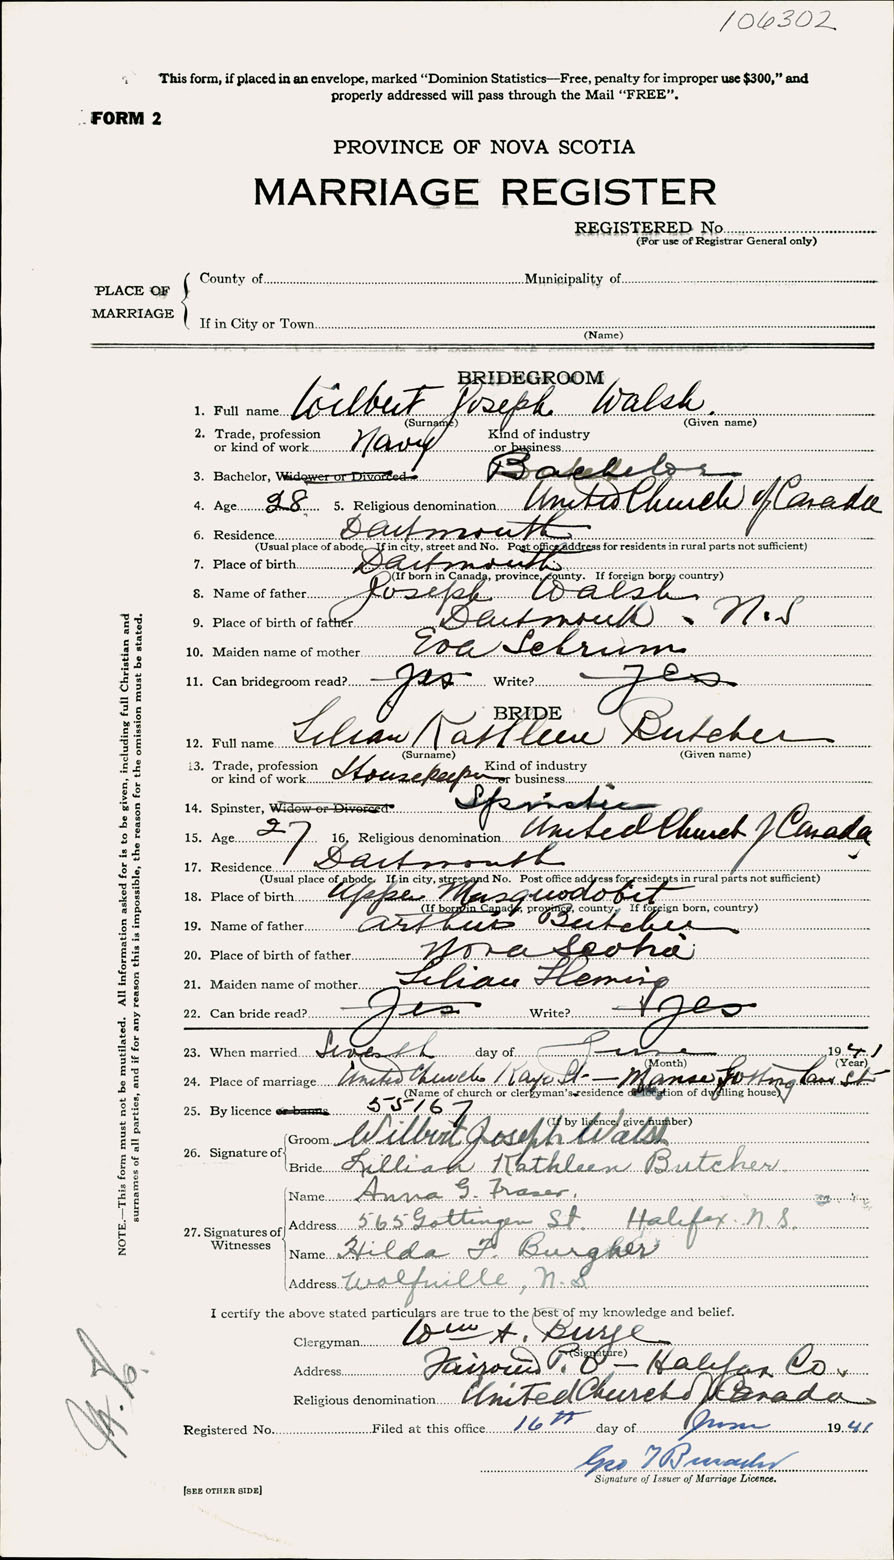 106302
This form, if placed in an envelope, marked “Dominion Statistics—Free, penalty for improper use $300,” and
properly addressed will pass through the Mail “FREE”.
FORM 2
PROVINCE OF NOVA SCOTIA
MARRIAGE REGISTER
REGISTERED No.
(For use of Registrar General only)
PLACE OF MARRIAGE
County of Municipality of
If in City or Town
(Name)
BRIDEGROOM
1. Full name Wilbert Joseph Walsh.
(Surname) (Given name)
2. Trade, profession or kind of work Navy Kind of industry or business
3. Bachelor, Widower or Divorced Bachelor
4. Age 28 5. Religious denomination United Church of Canada
6. Residence Dartmouth
(Usual place of abode. If in city, street and No. Post office address for residents in rural parts not sufficient)
7. Place of birth Dartmouth
(If born in Canada, province, county. If foreign born, country)
8. Name of father Joseph Walsh
9. Place of birth of father Dartmouth. N.S
10. Maiden name of mother Eva Schrum
11. Can bridegroom read? yes Write? yes
BRIDE
12. Full name Lilian Kathleen Butcher
(Surname) (Given name)
13. Trade, profession or kind of work Housekeeper Kind of industry or business
14. Spinster, Widow or Divorced Spinster
15. Age 27 16. Religious denomination United Church of Canada
17. Residence Dartmouth
(Usual place of abode. If in city, street and No. Post office address for residents in rural parts not sufficient)
18. Place of birth Upper Musquodobit
(If born in Canada, province, county. If foreign born, country)
19. Name of father Arthur Butcher
20. Place of birth of father Nova Scotia
21. Maiden name of mother Lilian Fleming
22. Can bride read? Yes Write? Yes
23. When married Seventh day of June 1941
(Month) (Year)
24. Place of marriage United Church Kaye St — Manse St
(Name of church or clergyman's residence or location of dwelling house)
25. By licence or banns 55167
(If by licence, give number)
26. Signature of
Groom Wilbert Joseph Walsh
Bride Lillian Kathleen Butcher.
27. Signatures of Witnesses
Name Anna G. Fraser.
Address 565 Gottingen St. Halifax N.S.
Name Hilda F. Burgher
Address Wolfville, N.S
I certify the above stated particulars are true to the best of my knowledge and belief.
Clergyman Wm A. Burge
(Signature)
Address P.O — Halifax Co.
Religious denomination United Church of Canada
Registered No. Filed at this office 16th day of June 1941
Geo
Signature of Issuer of Marriage Licence.
[SEE OTHER SIDE]
NOTE.—This form must not be mutilated. All information asked for is to be given, including full Christian and
surnames of all parties, and if for any reason this is impossible, the reason for the omission must be stated.